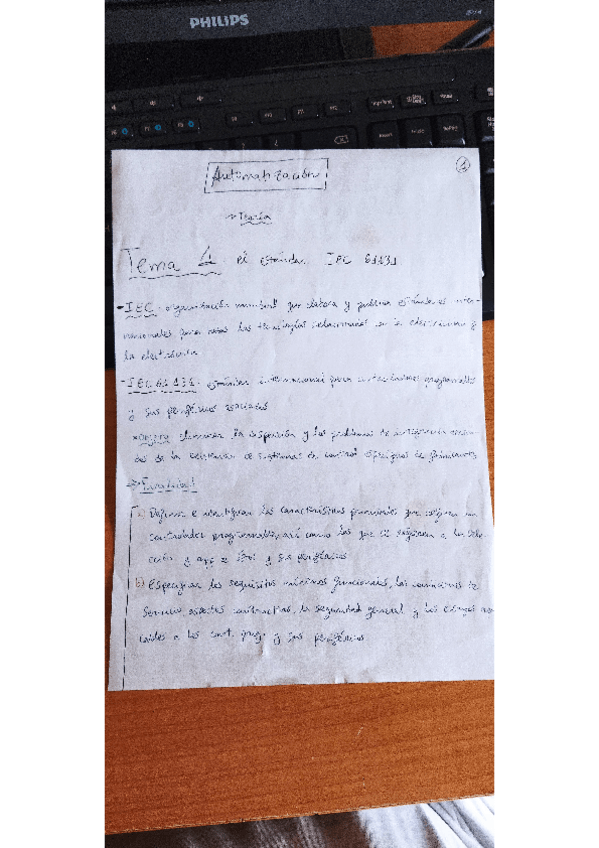 PHILIPS
Automatización
1
→ Teoría
Tema 1 El estándar IEC 61131
- IEC: organización mundial que elabora y publica estándares inter-
nacionales para todas las tecnologías relacionadas con la electricidad y
la electrónica
- IEC 61131: estándar internacional para controladores programables
y sus periféricos asociados
* Objeto: eliminar la dispersión y los problemas de
de la existencia de sistemas de control específicos de fabricantes
a) Definir e identificar las características principales que
controlador programable, así como las que se a la
y a sus periféricos
b) Especificar los requisitos mínimos funcionales, las condiciones de
servicio, aspectos constructivos, la seguridad general y los ensayos
a los cont. prog. y sus periféricos.